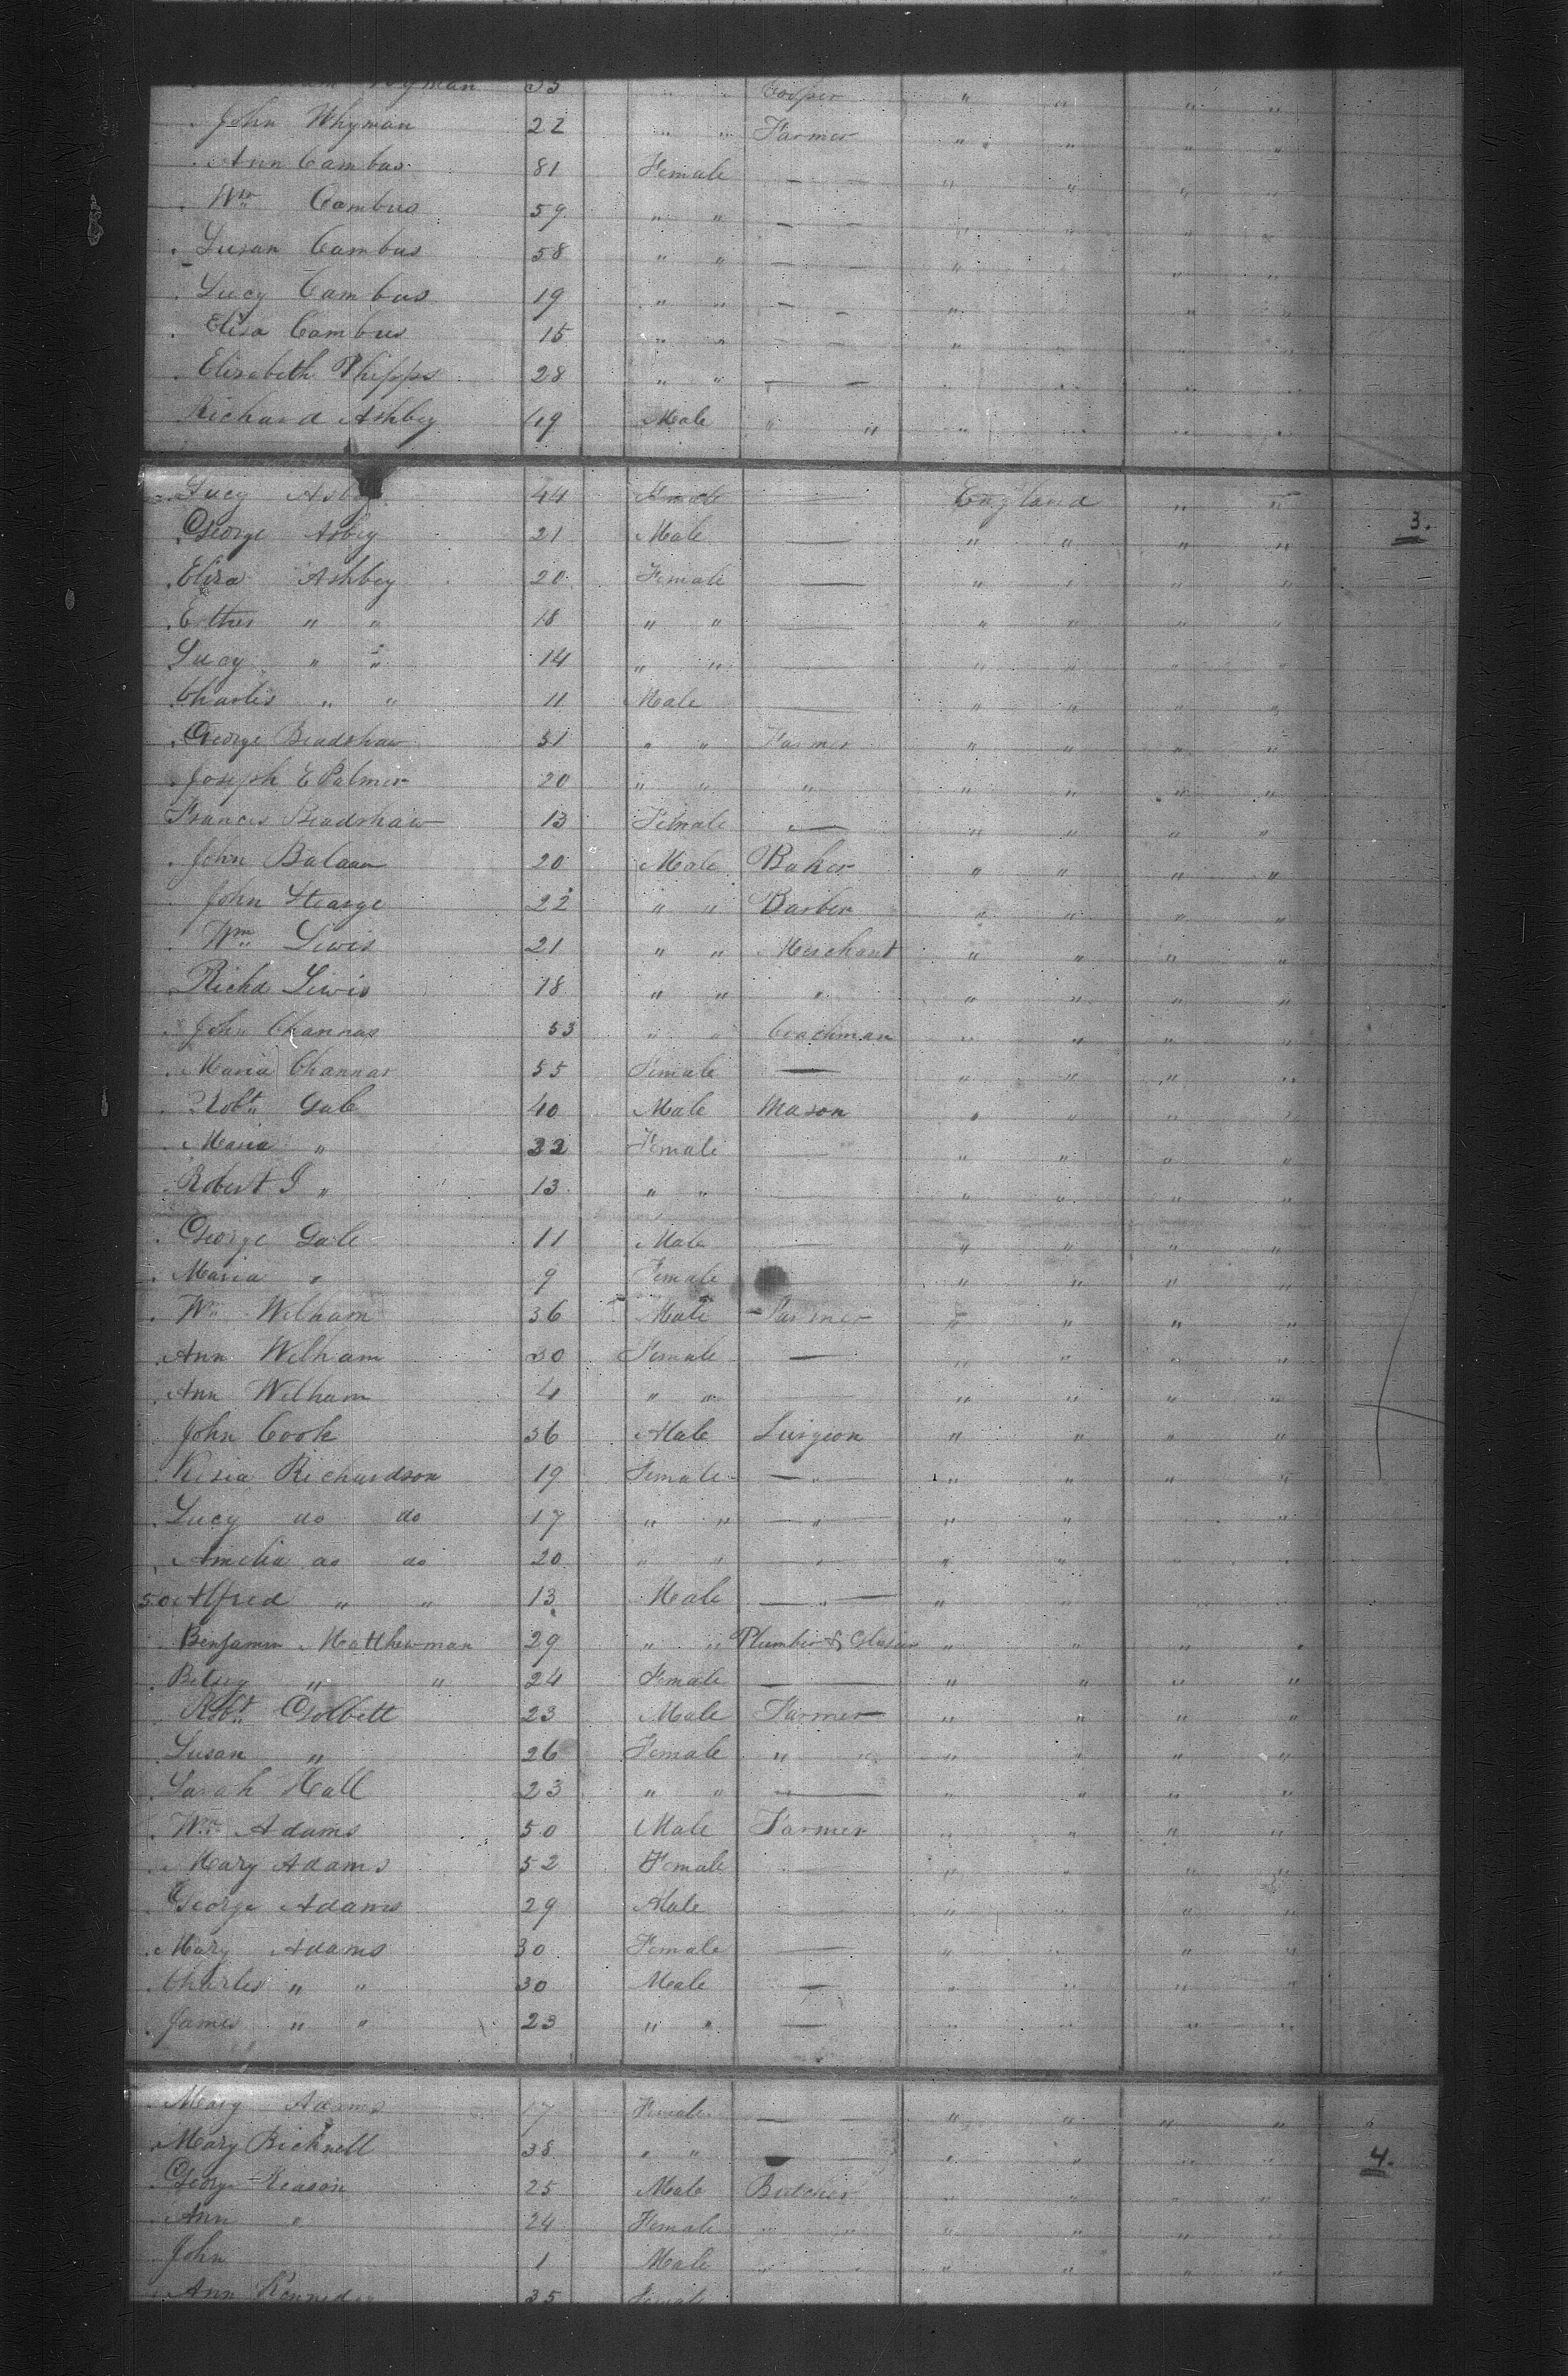 Whyman 35 " " Cooper " " " "
John Whyman 22 " " Farmer " " " "
Ann Cambus 81 Female — — " " " "
Wm Cambus 59 " " — — " " " "
Susan Cambus 58 " " — — " " " "
Lucy Cambus 19 " " — — " " " "
Eliza Cambus 15 " " — — " " " "
Elizabeth Phipps 28 " " — — " " " "
Richard Ashbey 49 Male " " " " " "
Lucy 44 Female — England " "
3.
George Asbey 21 Male — " " " "
Eliza Ashbey 20 Female — " " " "
Esther " " 18 " " — " " " "
Lucy " " 14 " " — " " " "
Charles " " 11 Male — " " " "
George Bradshaw 51 " " Farmer " " " "
Joseph E Palmer 20 " " " " " " "
Frances Bradshaw 13 Female — " " " "
John 20 Male Baker " " " "
John 22 " " Barber " " " "
Wm Lewis 21 " " Merchant " " " "
Richd Lewis 18 " " " " " " "
John Channas 53 " " Coachman " " " "
Maria Channas 55 Female — " " " "
Robt Gale 40 Male Mason " " " "
Maria " 32 Female — " " " "
Robert G " 13 " " — " " " "
George Gale 11 Male — " " " "
Maria " 9 Female — " " " "
Wm Welham 36 Male Farmer " " " "
Ann Welham 30 Female — " " " "
Ann Welham 4 " " — " " " "
John Cook 36 Male Surgeon " " " "
Kesia Richardson 19 Female — " — " " " "
Lucy do do 17 " " — " — " " " "
Amelia do do 20 " " — " — " " " "
50 Alfred " " 13 Male — " — " " " "
Benjamin Matthewman 29 " " Plumber & Glasier " " " "
Betsey " " 24 Female — — " " " "
Robt Golbett 23 Male Farmer " " " "
Susan " 26 Female " " " " " "
Sarah Hall 23 " " — " " " "
Wm Adams 50 Male Farmer " " " "
Mary Adams 52 Female — " " " "
George Adams 29 Male " " " "
Mary Adams 30 Female — " " " "
Charles " " 30 Male — " " " "
James " " 23 " " — " " " "
Mary Adams 17 Female — — " " " "
Mary Bicknell 38 " " — " " " "
4.
George Reason 25 Male Butcher " " " "
Ann " 24 Female " " " " " "
John 1 Male " " " " " "
Ann 35 Female